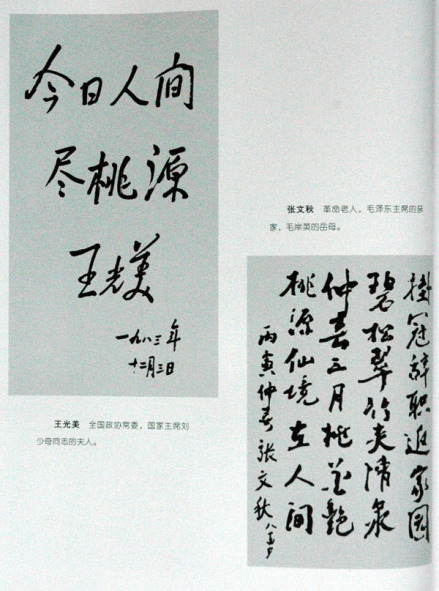 今日人间
尽桃源
王光美
一九八三年
十二月三日
王光美 全国政协常委，国家主席刘
少奇同志的夫人。
张文秋 革命老人，毛泽东主席的亲
家，毛岸英的岳母。
掛冠辞职返家园
碧松翠竹夹清泉
仲春三月桃花艳
桃源仙境在人间
丙寅仲春张文秋